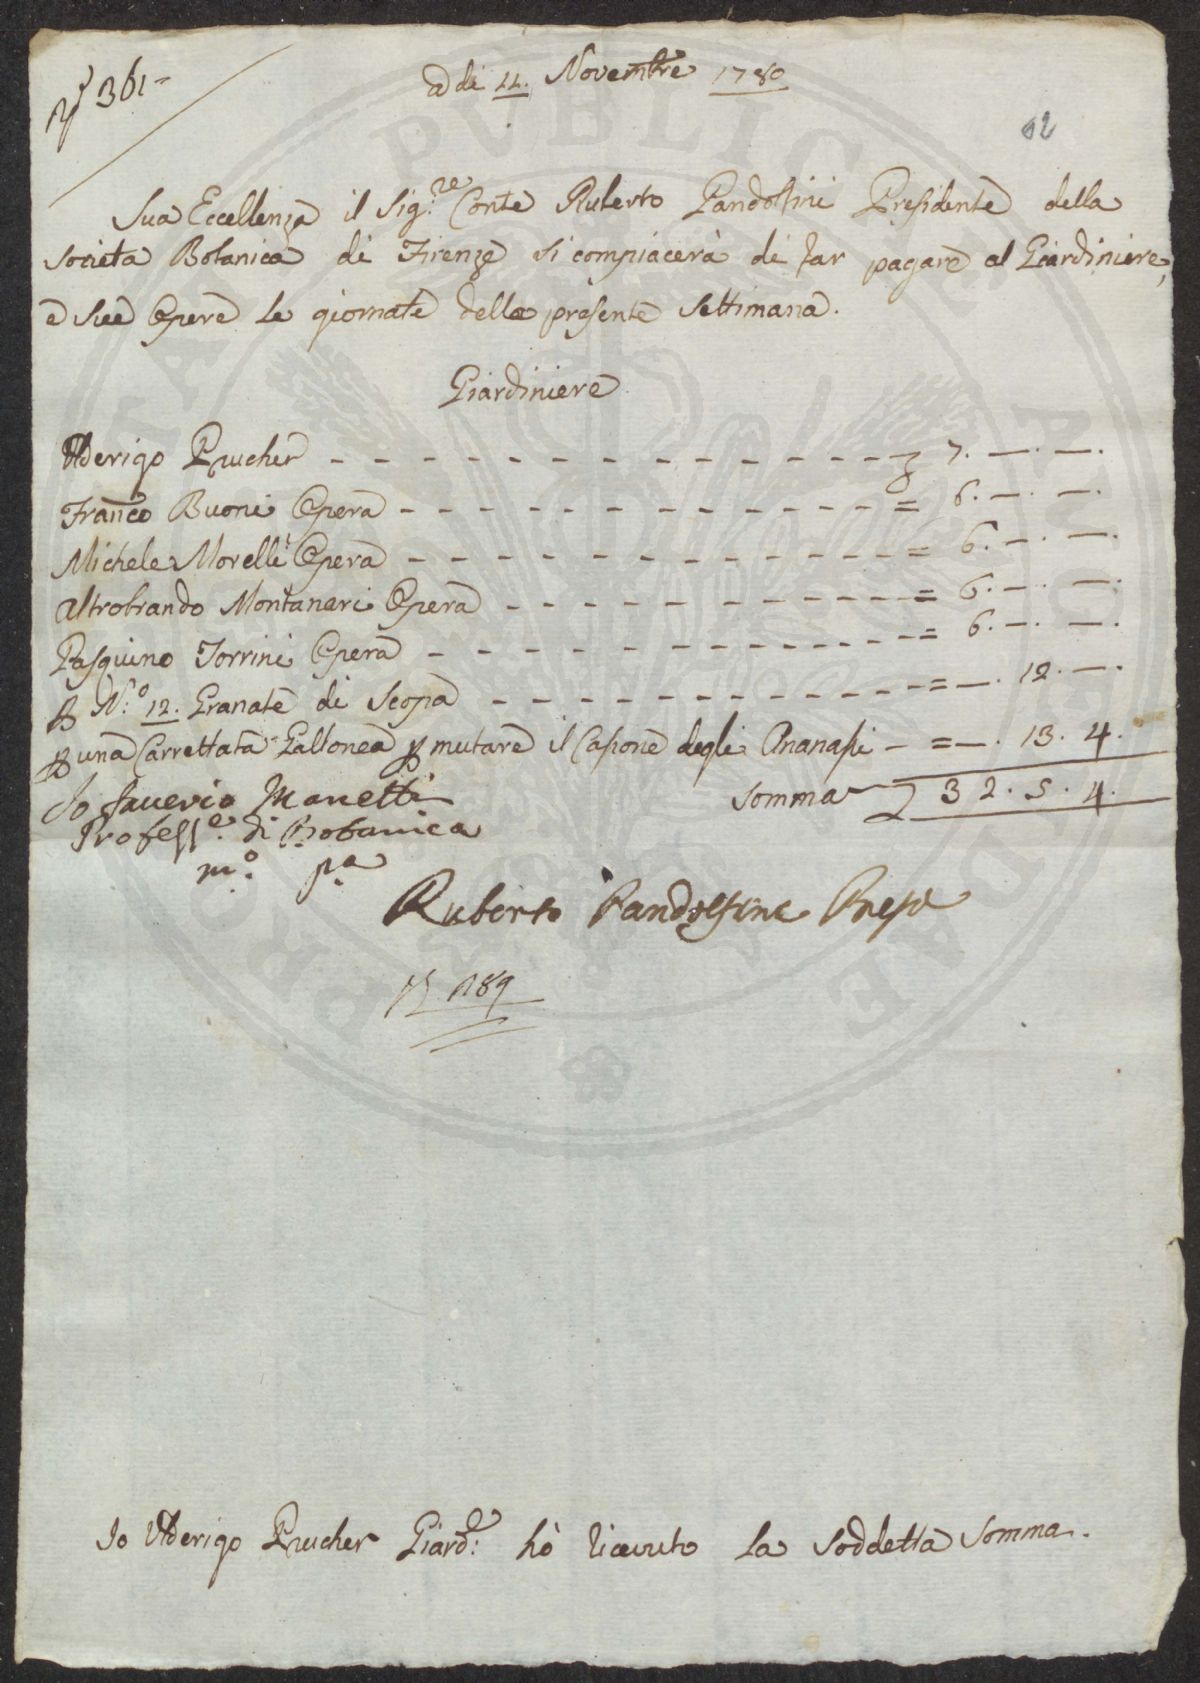 361
adi 11. Novembre 1780
62
Sua Eccellenza il Sig.re Conte Ruberto Pandolfini Presidente della
Società Botanica di Firenze si compiacerà di far pagare al Giardiniere,
e sue Opere le giornate della presente Settimana.
Giardiniere
Ulderigo Prucher - - - - - - - - - - - - - 7. — . — .
Franco Buoni Opera - - - - - - - - - - - - = 6. — . — .
Michele Morelli Opera - - - - - - - - - - - = 6. — . — .
Altobrando Montanari Opera - - - - - - - - - = 6. — . — .
Pasquino Torrini Opera - - - - - - - - - - - = 6. — . — .
N.o 12. Granate di Scopa - - - - - - - - - = — . 12. — .
una Carrettata Gallonea mutare il Casone degli Ananassi - = — . 13. 4.
Somma 32. 5. 4.
Io Saverio Manetti
Profess.e di Botanica
m.o p.a
Ruberto Pandolfini Presi
189
Io Ulderigo Prucher Giard.e hò ricevuto la soddetta Somma.